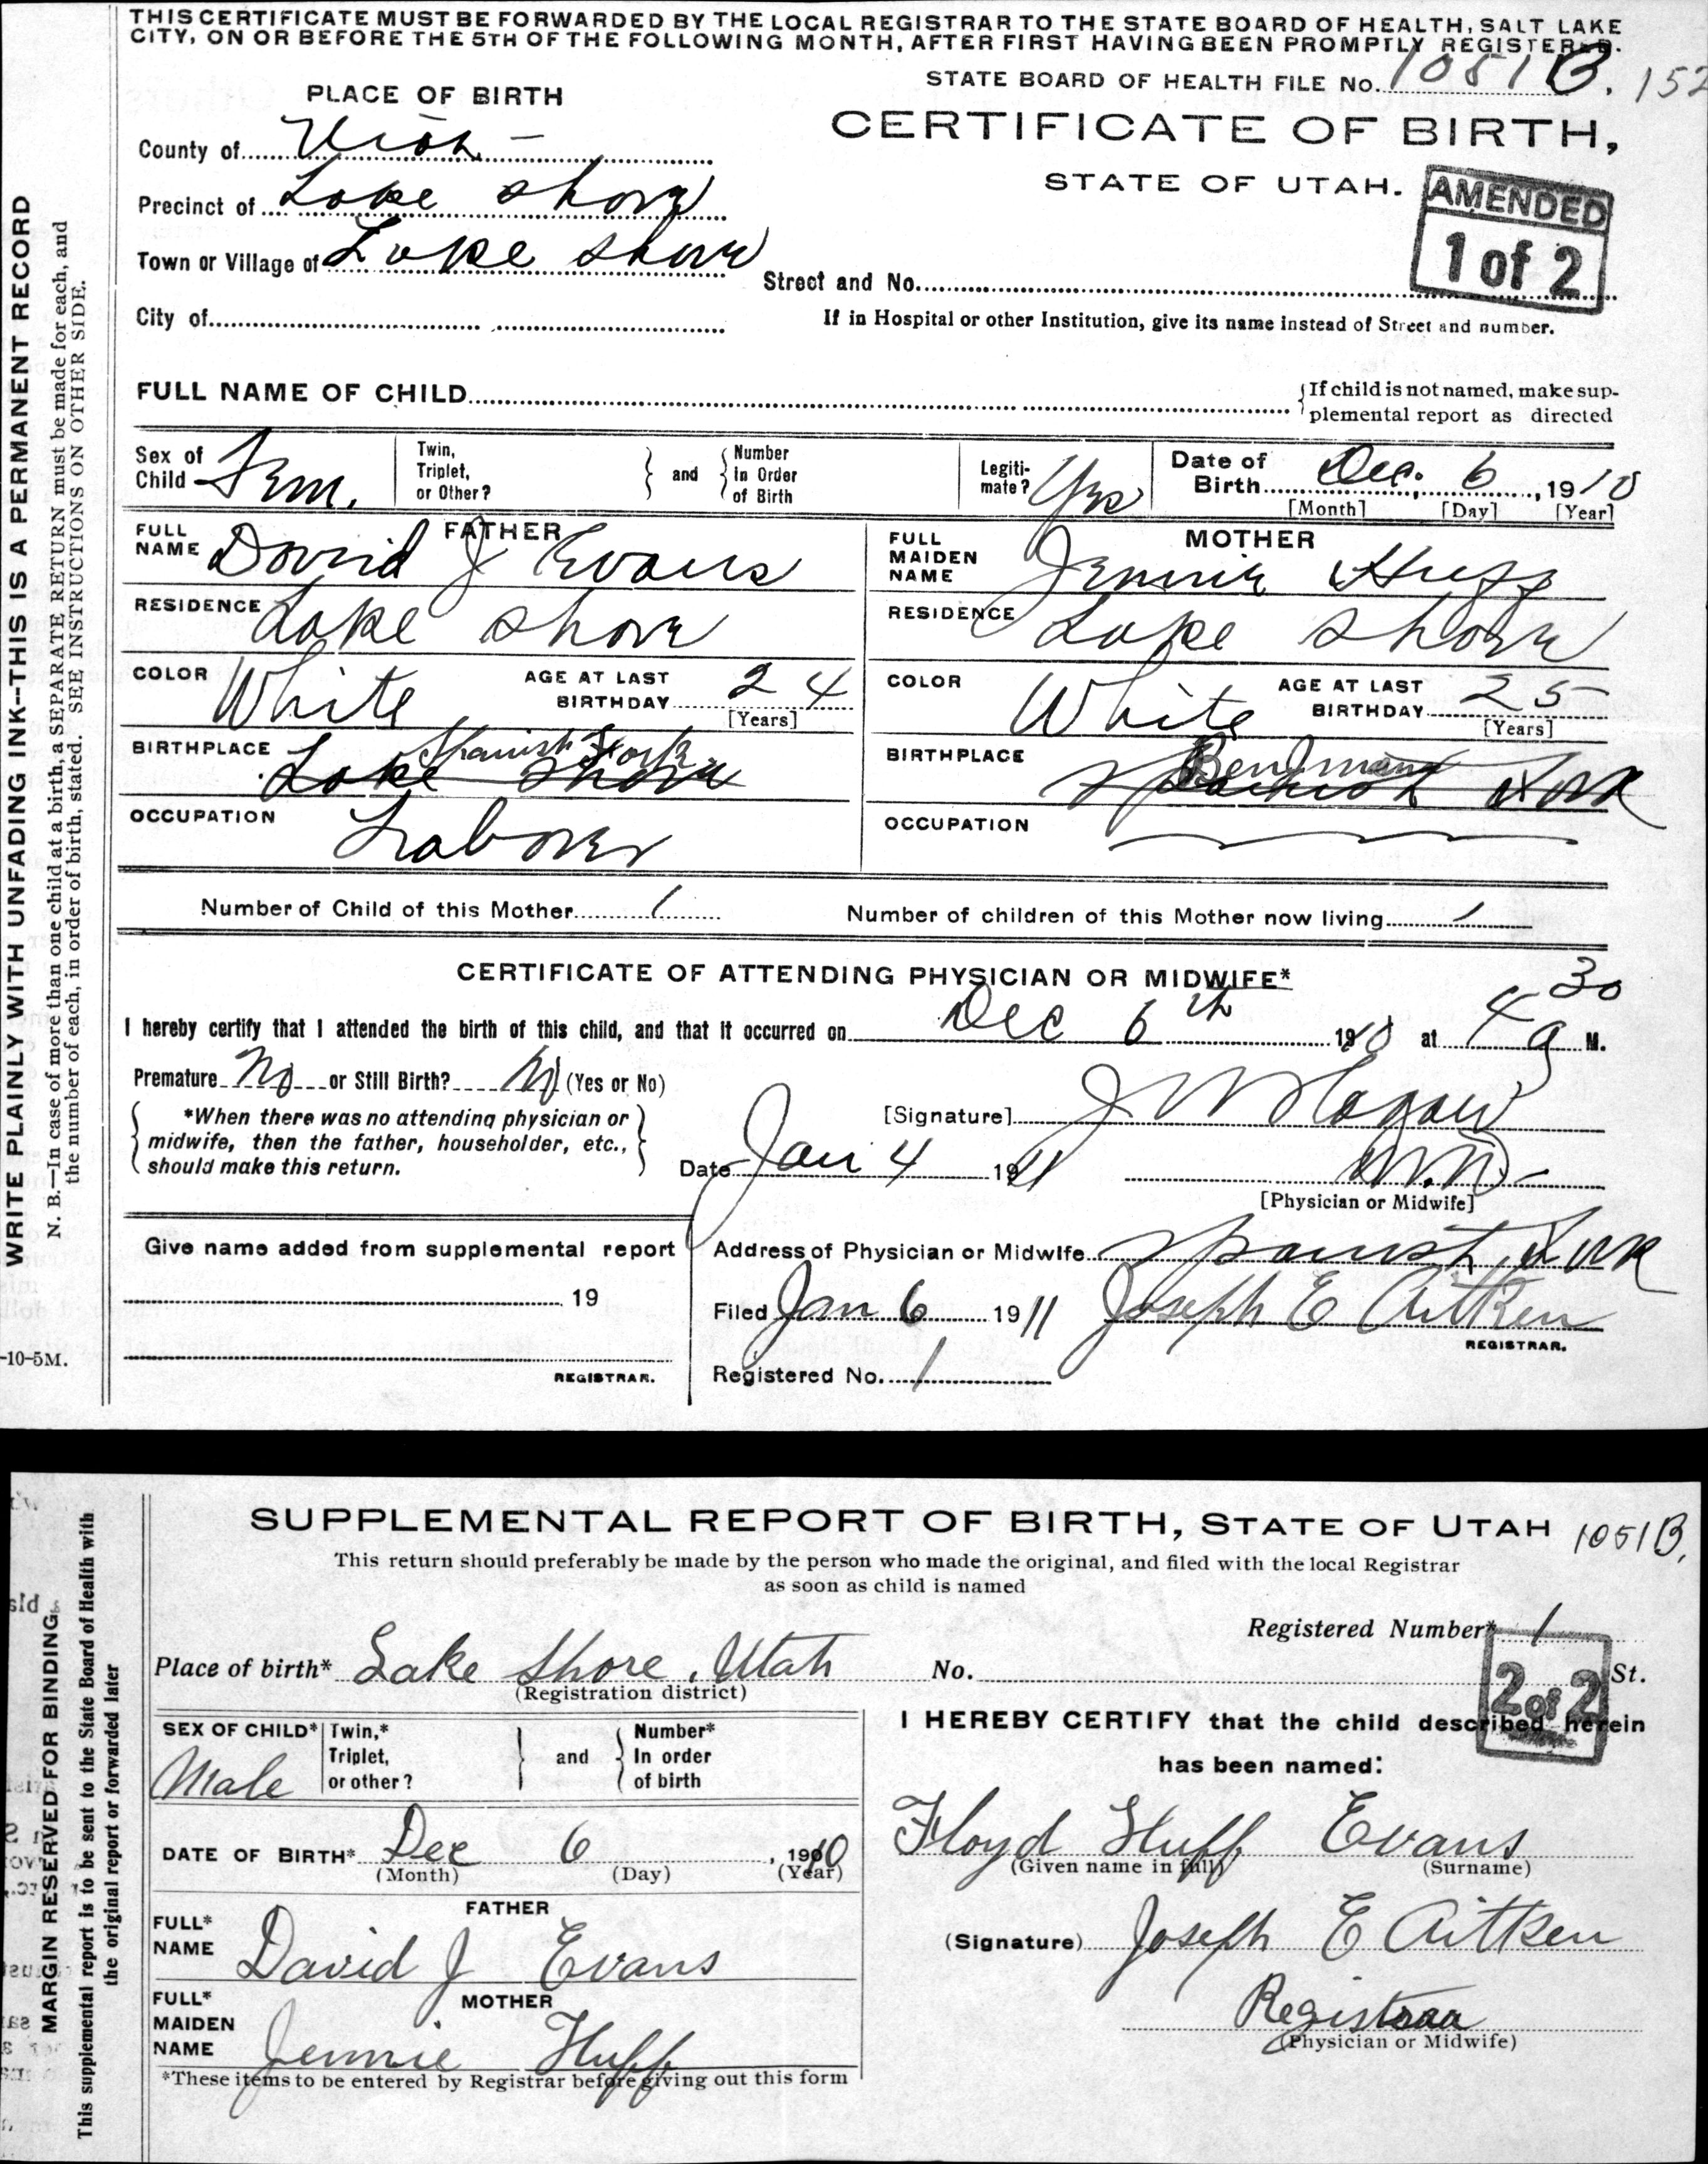 THIS CERTIFICATE MUST BE FORWARDED BY THE LOCAL REGISTRAR TO THE STATE BOARD OF HEALTH, SALT LAKE
CITY, ON OR BEFORE THE 5TH OF THE FOLLOWING MONTH, AFTER FIRST HAVING BEEN PROMPTLY REGISTERED.
STATE BOARD OF HEALTH FILE No. 1051 B. 152
PLACE OF BIRTH
CERTIFICATE OF BIRTH,
County of Utah
STATE OF UTAH.
AMENDED
1 of 2
Precinct of Lake Shore
Town or Village of Lake Shore
Street and No.
City of
If in Hospital or other Institution, give its name instead of Street and number.
FULL NAME OF CHILD
If child is not named, make sup-
plemental report as directed
Sex of Child Fem.
Twin, Triplet, or Other?
and
Number in Order of Birth
Legiti-mate? Yes
Date of Birth Dec. 6, 1910
[Month] [Day] [Year]
FATHER
FULL NAME David J Evans
RESIDENCE Lake Shore
COLOR White
AGE AT LAST BIRTHDAY 24
[Years]
BIRTHPLACE Spanish Fork
Lake Shore
OCCUPATION Laborer
MOTHER
FULL MAIDEN NAME Jennie Huff
RESIDENCE Lake Shore
COLOR White
AGE AT LAST BIRTHDAY 25
[Years]
BIRTHPLACE Benjamin
Spanish Fork
OCCUPATION
Number of Child of this Mother 1
Number of children of this Mother now living 1
CERTIFICATE OF ATTENDING PHYSICIAN OR MIDWIFE*
I hereby certify that I attended the birth of this child, and that it occurred on Dec 6th 1910 at 4 30 a M.
Premature No or Still Birth? No (Yes or No)
*When there was no attending physician or
midwife, then the father, householder, etc.,
should make this return.
[Signature] J W Hagan
Date Jan 4 1911
M.D.
[Physician or Midwife]
Give name added from supplemental report
19
REGISTRAR.
Address of Physician or Midwife Spanish Fork
Filed Jan 6 1911 Joseph E Aitken
REGISTRAR.
Registered No. 1
WRITE PLAINLY WITH UNFADING INK--THIS IS A PERMANENT RECORD
N. B.—In case of more than one child at a birth, a SEPARATE RETURN must be made for each, and
the number of each, in order of birth, stated. SEE INSTRUCTIONS ON OTHER SIDE.
-10-5M.
SUPPLEMENTAL REPORT OF BIRTH, STATE OF UTAH 1051B.
This return should preferably be made by the person who made the original, and filed with the local Registrar
as soon as child is named
Registered Number* 1
2 of 2
Place of birth* Lake Shore, Utah
(Registration district)
No. St.
SEX OF CHILD* Male
Twin,* Triplet, or other?
and
Number* In order of birth
DATE OF BIRTH* Dec 6, 1910
(Month) (Day) (Year)
FATHER
FULL* NAME David J Evans
MOTHER
FULL* MAIDEN NAME Jennie Huff
*These items to be entered by Registrar before giving out this form
I HEREBY CERTIFY that the child described herein
has been named:
Floyd Huff Evans
(Given name in full) (Surname)
(Signature) Joseph E Aitken
Registrar
(Physician or Midwife)
MARGIN RESERVED FOR BINDING
This supplemental report is to be sent to the State Board of Health with
the original report or forwarded later